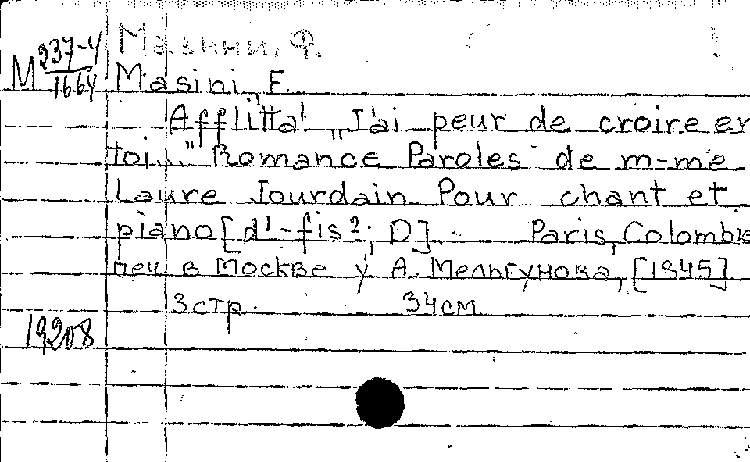 М 237-4/1664
Мазини, Ф.
Masini, F.
Afflitta! „J'ai peur de croire en
toi..." Romance Paroles de m-me
Laure Jourdain Pour chant et
piano [d¹-fis²; D]. Paris, Colombie
печ в Москве у А. Мельгунова, [1845]
3стр. 34см
19208